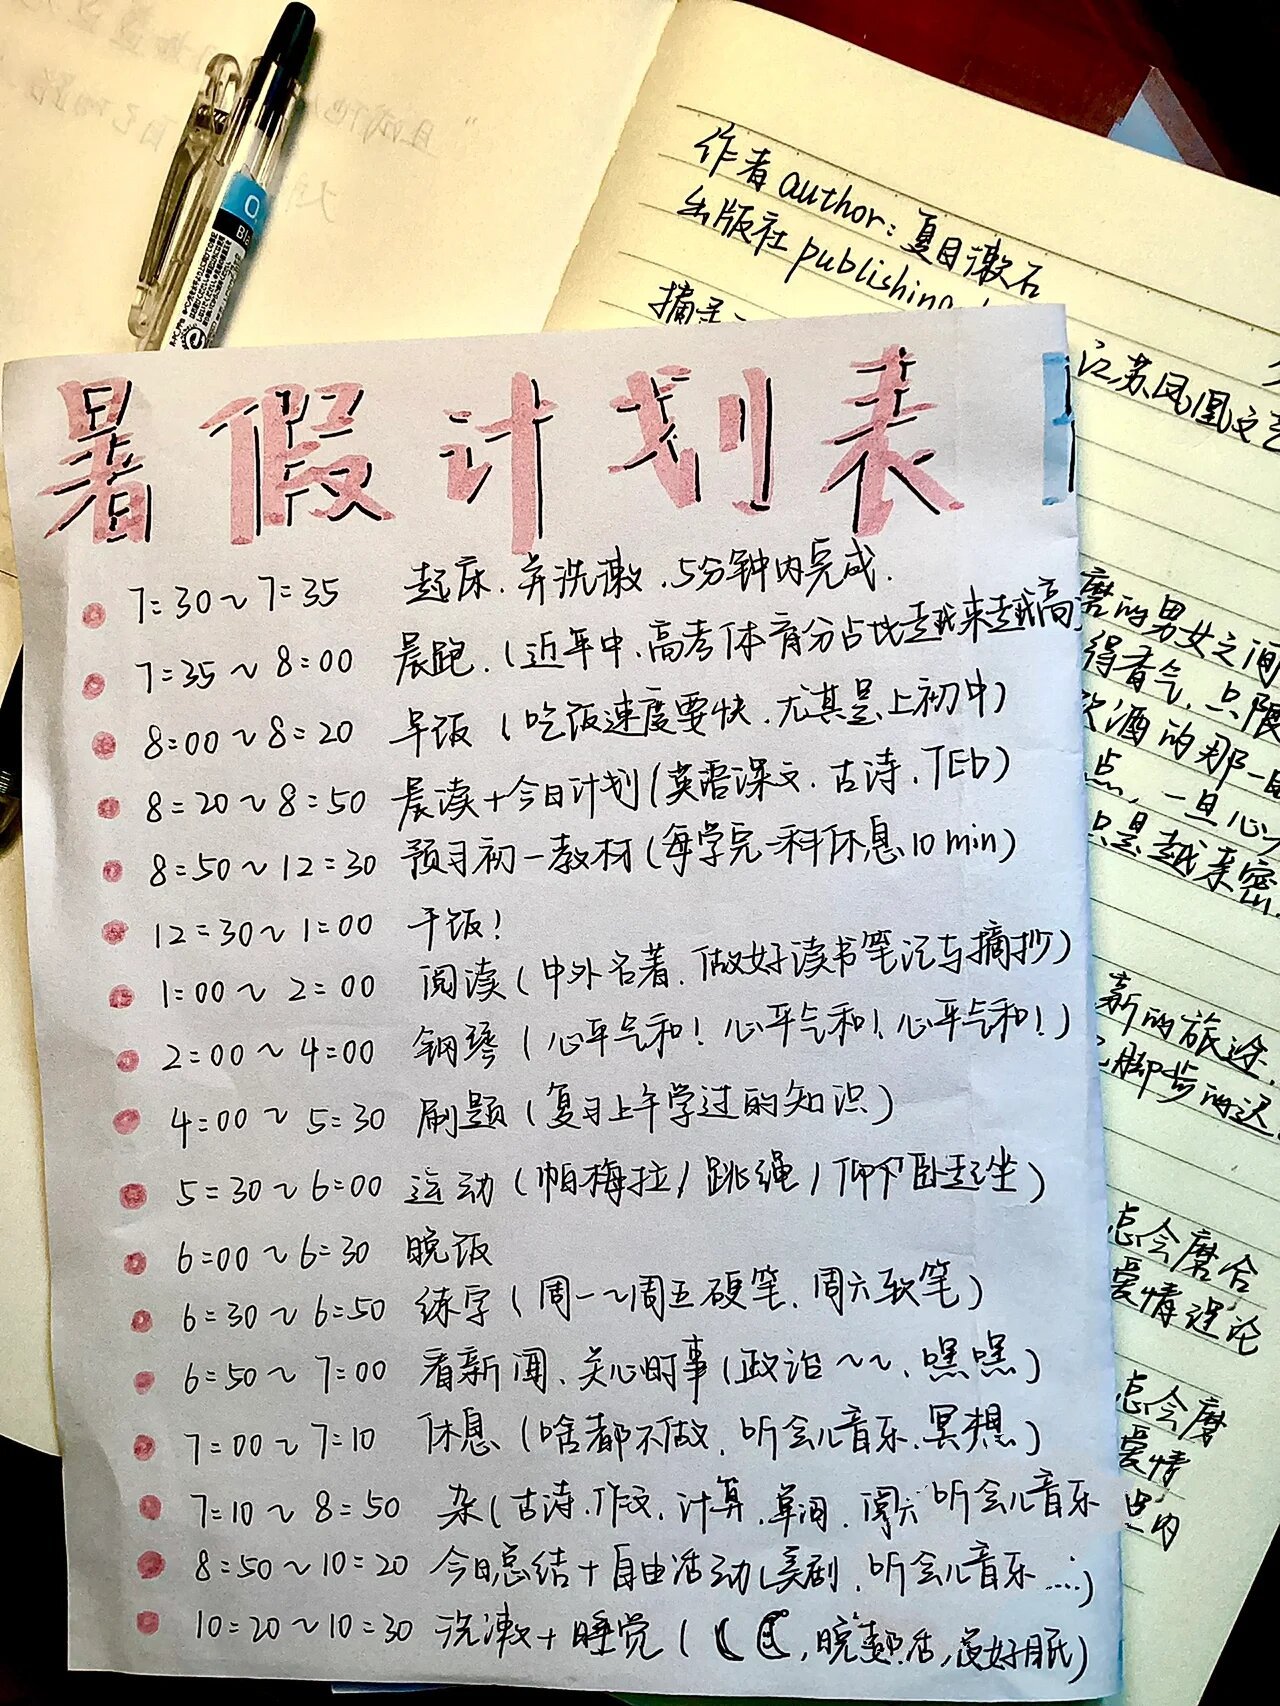 作者author：夏目漱石
出版社publishing
摘录
江苏凤凰文艺
暑假计划表
7:30～7:35 起床.并洗漱.5分钟内完成.
7:35～8:00 晨跑.(近年中.高考体育分占比越来越高
8:00～8:20 早饭(吃饭速度要快.尤其是上初中)
8:20～8:50 晨读+今日计划(英语课文.古诗.TEb)
8:50～12:30 预习初一教材(每学完一科休息10min)
12:30～1:00 干饭!
1:00～2:00 阅读(中外名著.做好读书笔记与摘抄)
2:00～4:00 钢琴(心平气和!心平气和!心平气和!)
4:00～5:30 刷题(复习上午学过的知识)
5:30～6:00 运动(帕梅拉/跳绳/仰卧起坐)
6:00～6:30 晚饭
6:30～6:50 练字(周一～周五硬笔.周六软笔)
6:50～7:00 看新闻、关心时事(政治～～.嘿嘿)
7:00～7:10 休息(啥都不做.听会儿音乐.冥想)
7:10～8:50 杂(古诗.作文.计算.单词. 听会儿音乐
8:50～10:20 今日总结+自由活动(美剧.听会儿音乐……)
10:20～10:30 洗漱+睡觉( ,好眠)
磨的男女之间
得香气.只限
饮酒的那一
点，一旦心
只是越来密.
新的旅途.
脚步的迟
怎会磨合
爱情理论
怎会磨
爱情
内